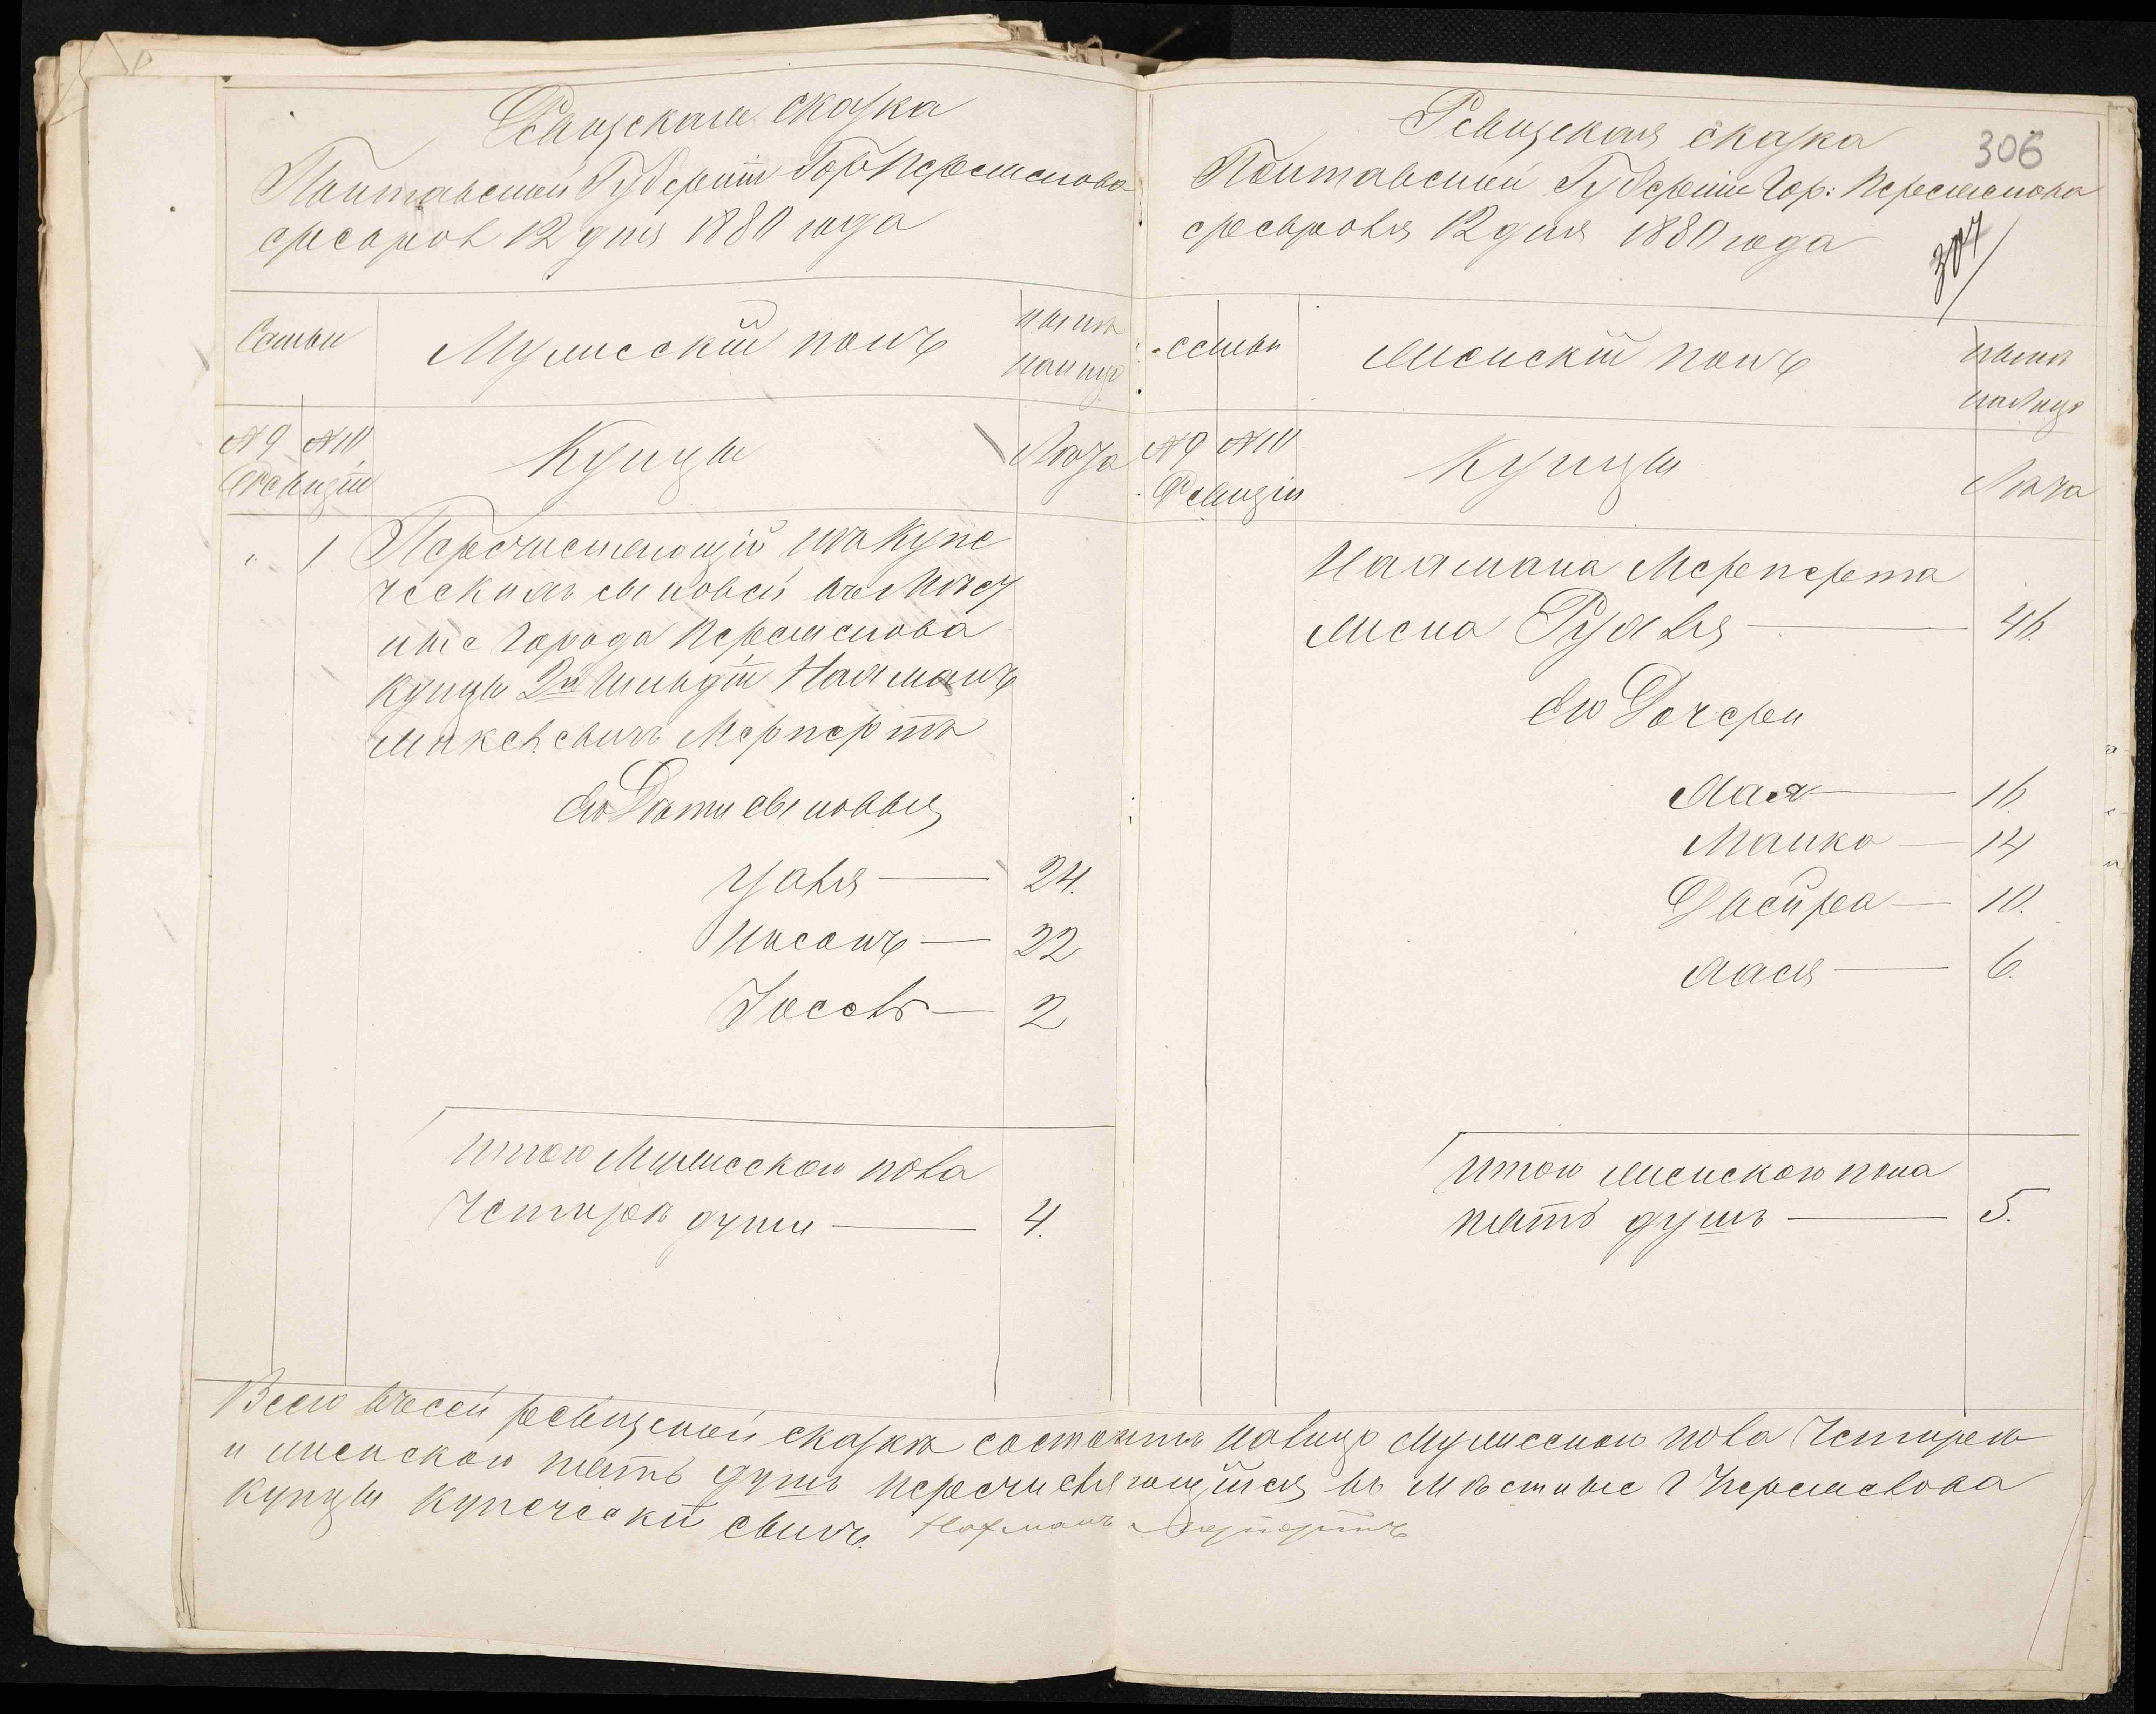 Ревизская сказка
Полтавской Губернiи Гор Переяслова
февраля 12 дня 1880 года
Семьи
Мужескiй полъ
ныне
налицо
№ 9 № 10
Ревизiи
Купцы
Лета
" 1 Перечисляющiй изъ Купе
ческихъ сыновей въ Мест
ные города Переяслова
купцы 2й Гильдiи Нахманъ
Мерпертъ
его Дети сыновья
24.
Нисонъ — 22
2
Итого Мужеского пола
Четыре души — 4.
Ревизская сказка
306
Полтавской Губернiи Гор: Переяслова
февраля 12 дня 1880 года
307
семьи
женскiй полъ
ныне
налицо
№ 9 № 10
Ревизiи
Купцы
Лета
Нахмана Мерперта
жена — 46.
его Дочери
Хая — 16.
Манко — 14
Двейра — 10.
Хася — 6.
Итого женского пола
пять душъ — 5.
Всего въ сей ревизской сказке состоитъ налицо мужеского пола Четыре
и женского пять душъ перечисляющийся въ местные г Переяслова
купцы купеческiй сынъ Нахманъ Мерпертъ